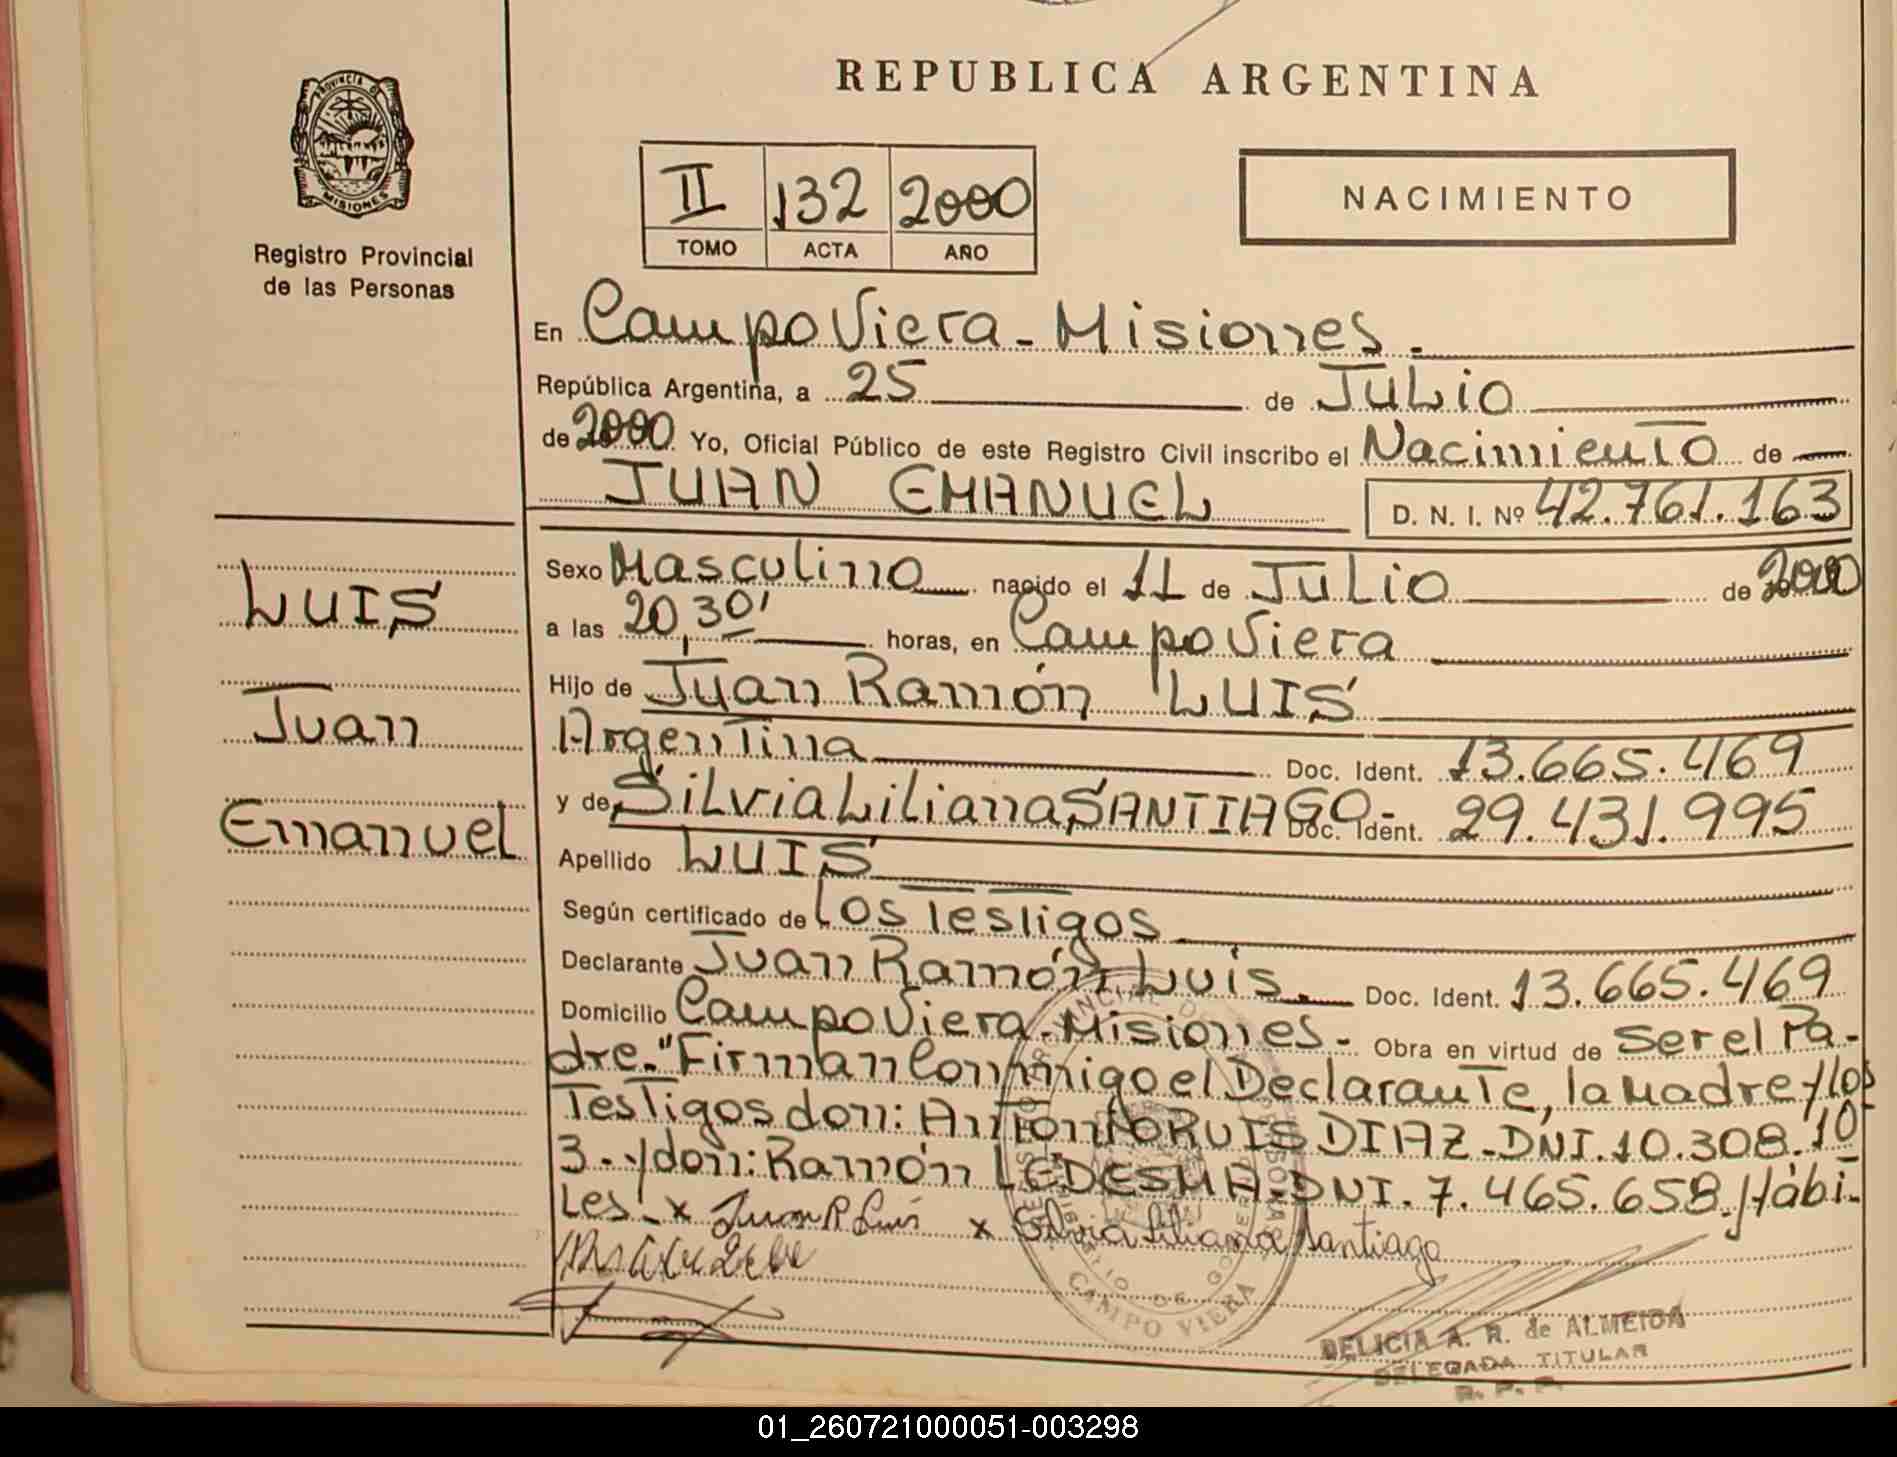 REPUBLICA ARGENTINA
PROVINCIA DE
MISIONES
Registro Provincial
de las Personas
II 132 2000
TOMO ACTA AÑO
NACIMIENTO
En Campo Viera - Misiones.
República Argentina, a 25 de Julio
de 2000 Yo, Oficial Público de este Registro Civil inscribo el Nacimiento de
JUAN EMANUEL D. N. I. Nº 42.761.163
LUIS
Juan
Emanuel
Sexo Masculino nacido el 11 de Julio de 2000
a las 20,30' horas, en Campo Viera
Hijo de Juan Ramón LUIS
Argentina Doc. Ident. 13.665.469
y de Silvia Liliana SANTIAGO- Doc. Ident. 29.431.995
Apellido LUIS
Según certificado de Los Testigos
Declarante Juan Ramón Luis. Doc. Ident. 13.665.469
Domicilio Campo Viera - Misiones - Obra en virtud de ser el Pa-
dre." Firman Conmigo el Declarante, la Madre y los
Testigos don: Antonio RUIS DIAZ - DNI. 10.308.10
3.- y don: Ramón LEDESMA - DNI. 7.465.658. Hábi-
Les.- x Juan R Luis x Silvia Liliana Santiago
CAMPO VIERA
DELICIA A. R. de ALMEIDA
DELEGADA TITULAR
R. P. P.
01_260721000051-003298